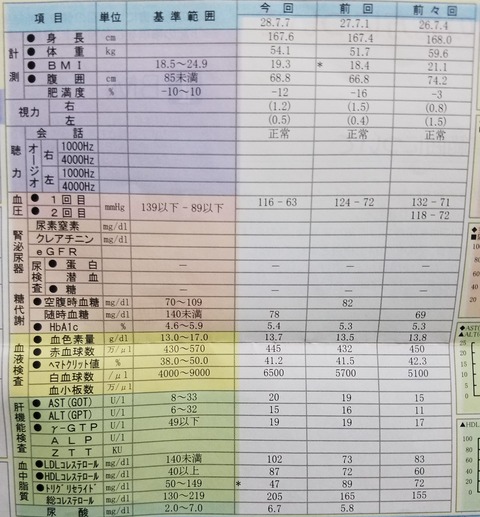 項目 単位 基準範囲 今回 前回 前々回
28.7.7 27.7.1 26.7.4
計測
●身長 cm 167.6 167.4 168.0
●体重 kg 54.1 51.7 59.6
●BMI 18.5～24.9 19.3 * 18.4 21.1
●腹囲 cm 85未満 68.8 66.8 74.2
肥満度 % -10～10 -12 -16 -3
視力 右 (1.2) (1.5) (0.8)
左 (0.5) (0.4) (1.5)
聴力
会話 正常 正常 正常
オージオ
右 1000Hz
4000Hz
左 1000Hz
4000Hz
血圧 ●1回目 mmHg 139以下-89以下 116-63 124-72 132-71
●2回目 118-72
腎泌尿器
尿素窒素 mg/dl
クレアチニン mg/dl
eGFR
尿検査
●蛋白 － － － －
潜血
●糖 － － － －
糖代謝
●空腹時血糖 mg/dl 70～109 82
随時血糖 mg/dl 140未満 78 69
●HbA1c % 4.6～5.9 5.4 5.3 5.3
血液検査
●血色素量 g/dl 13.0～17.0 13.7 13.5 13.8
●赤血球数 万/μl 430～570 445 432 450
●ヘマトクリット値 % 38.0～50.0 41.2 41.5 42.3
白血球数 /μl 4000～9000 6500 5700 5100
血小板数 万/μl
肝機能検査
●AST(GOT) U/l 8～33 20 19 15
●ALT(GPT) U/l 6～32 15 16 11
●γ-GTP U/l 49以下 19 19 17
ALP U/l
ZTT KU
血中脂質
●LDLコレステロール mg/dl 140未満 102 73 83
●HDLコレステロール mg/dl 40以上 87 72 60
●トリグリセライド mg/dl 50～149 * 47 89 72
総コレステロール mg/dl 130～219 205 165 155
尿酸 mg/dl 2.0～7.0 6.7 5.8